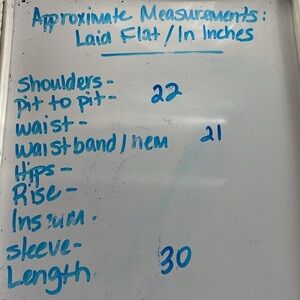 Approximate Measurements:
Laid Flat / In Inches
Shoulders-
pit to pit- 22
waist-
waistband / hem 21
Hips-
Rise-
Inseum.
sleeve-
Length 30